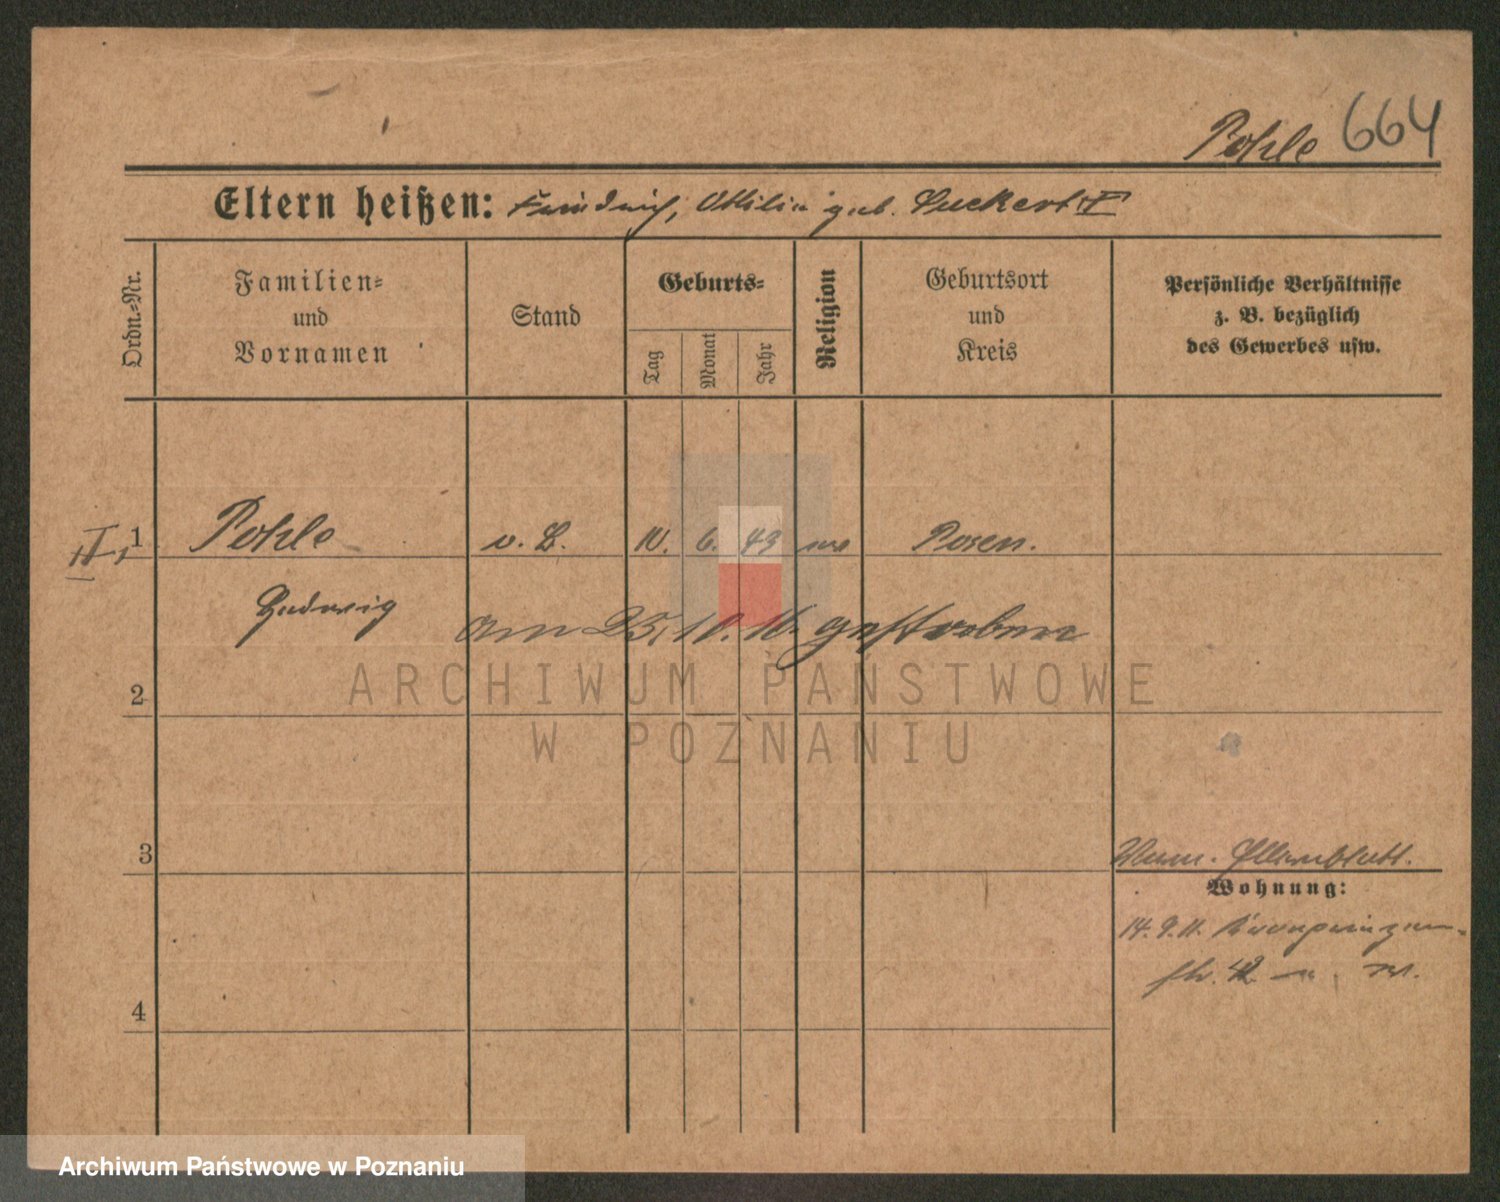 Pohle 664
Eltern heißen: Friedrich, Ottilie geb. Luckert
Ordn.-Nr.
Familien-
und
Vornamen
Stand
Geburts-
Tag
Monat
Jahr
Religion
Geburtsort
und
Kreis
Persönliche Verhältnisse
z. B. bezüglich
des Gewerbes usw.
1 Pohle 10. 6. 49 Posen.
Ludwig
am 25. 10. 16. gestorben
2
3
Elternblatt.
Wohnung:
14. 9. 11. Kronprinzen-
str.
4
ARCHIWUM PAŃSTWOWE
W POZNANIU
Archiwum Państwowe w Poznaniu